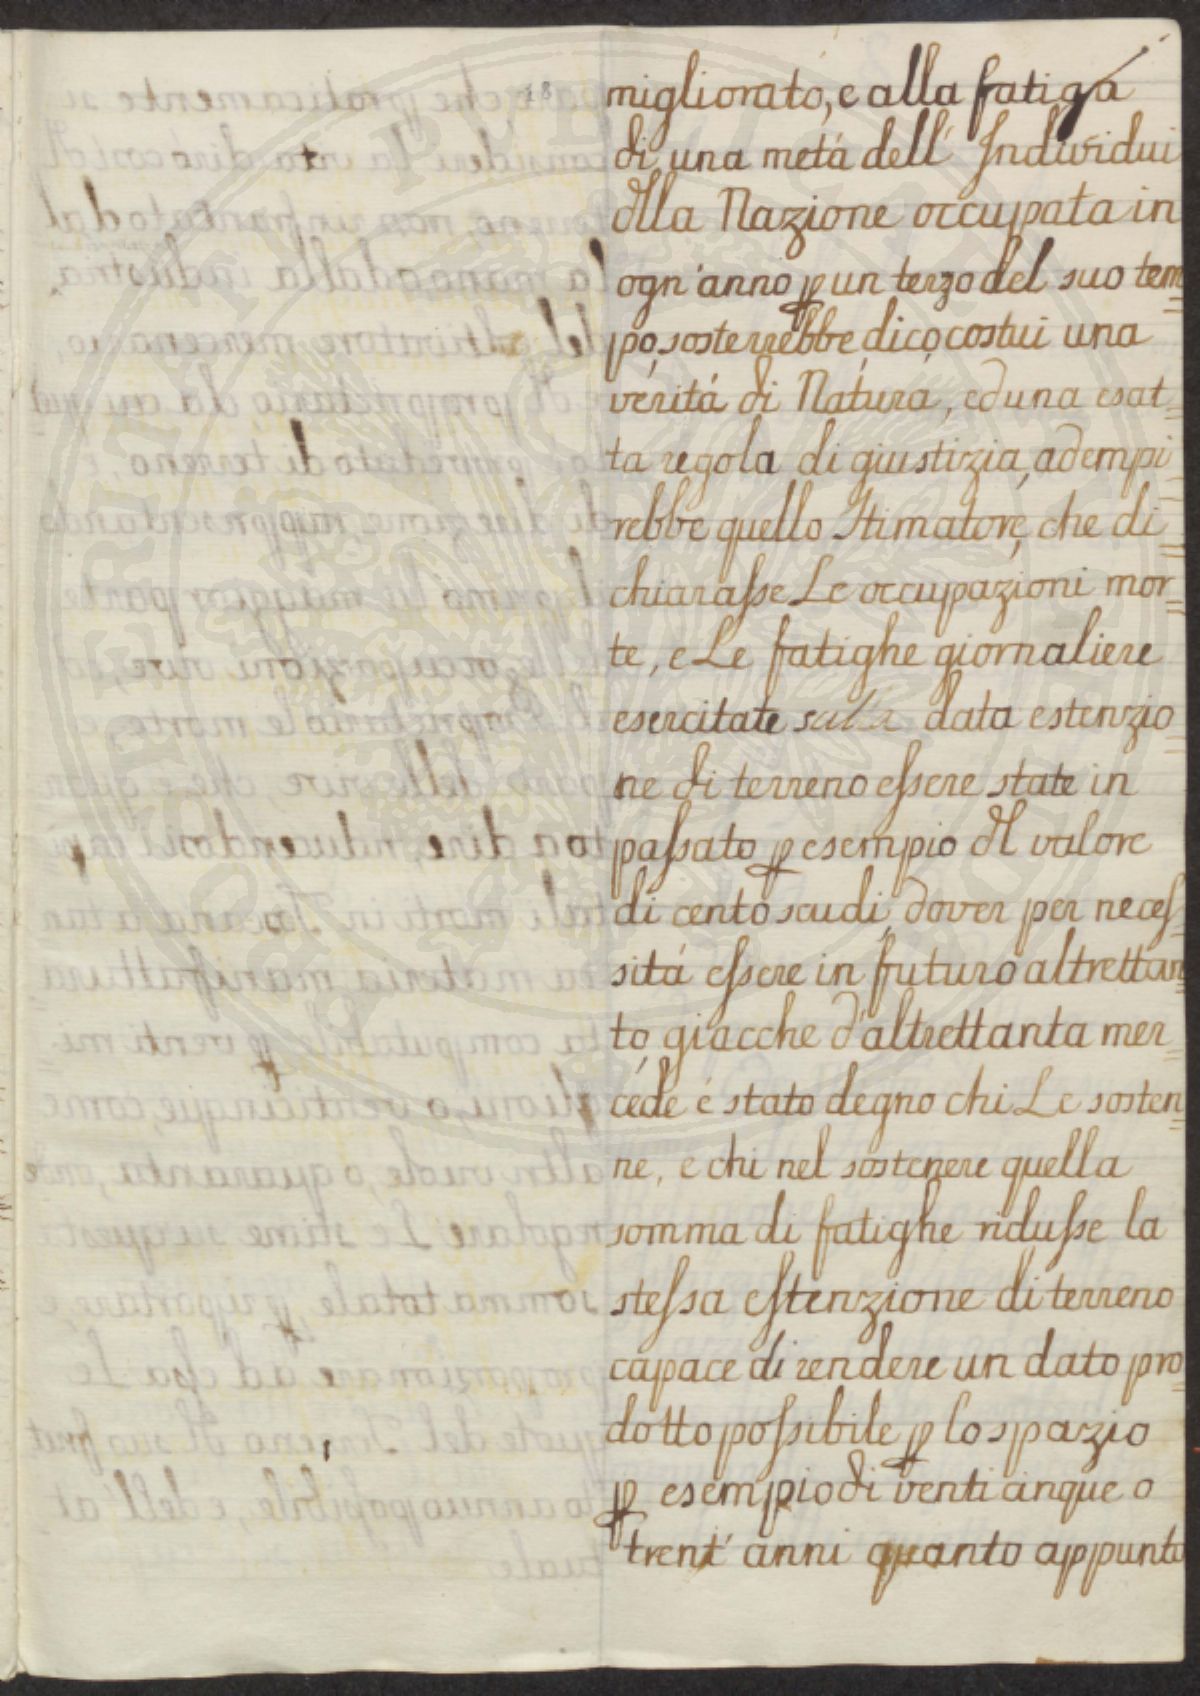 18
migliorato, e alla fatiga
di una metá dell' Individui
dlla Nazione occupata in
ogn'anno p un terzo del suo tem=
po, sosterrebbe, dico, costui una
veritá di Natura, ed una esat=
ta regola di giustizia, adempi=
rebbe quello Stimatore, che di=
chiarasse Le occupazioni mor=
te, e Le fatighe giornaliere
esercitate sulla data estenzio=
ne di terreno essere state in
passato p esempio dl valore
di cento scudi, dover per neces=
sitá essere in futuro altrettan=
to, giacche d'altrettanta mer=
cede é stato degno chi Le sosten=
ne, e chi nel sostenere quella
somma di fatighe ridusse la
stessa estenzione di terreno
capace di rendere un dato pro=
dotto possibile p lo spazio
p esempio di venticinque o
trent' anni quanto appunto